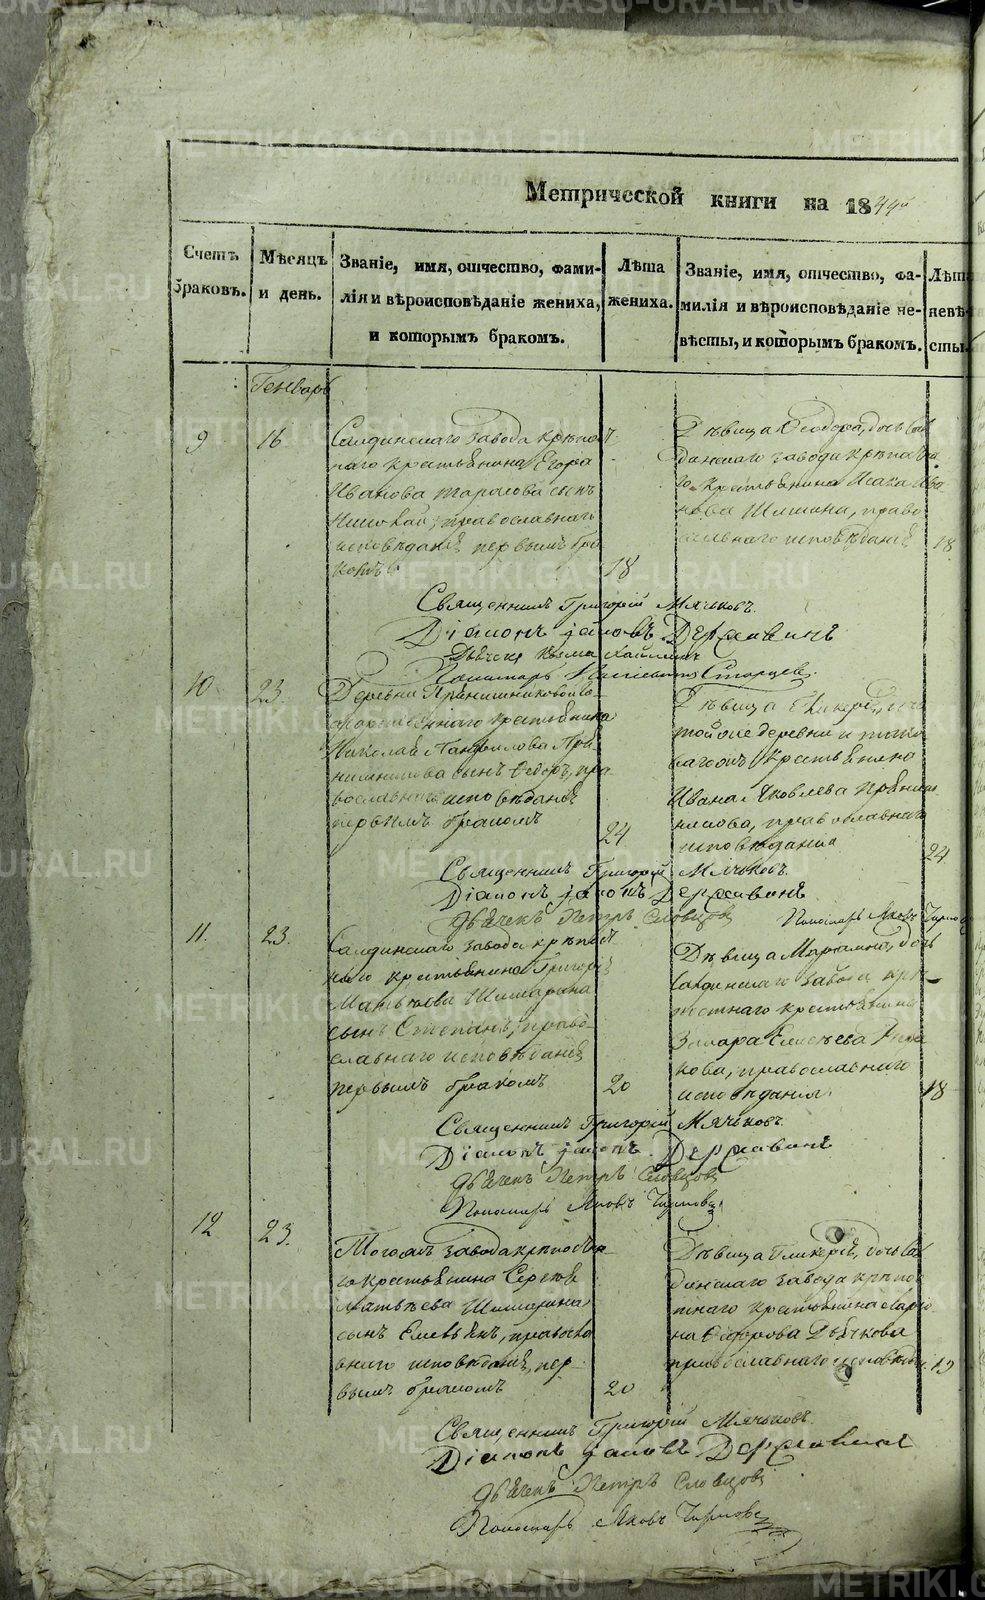 METRIKI.GASO-URAL.RU
Метрической книги на 1844й
Счетъ браковъ.
Мѣсяцъ и день.
Званіе, имя, отчество, фами-
лія и вѣроисповѣданіе жениха,
и которымъ бракомъ.
Лѣта
жениха.
Званіе, имя, отчество, фа-
милія и вѣроисповѣданіе не-
вѣсты, и которымъ бракомъ.
Лѣта
невѣ-
сты.
Генварь
9
16
Салдинскаго завода крѣпост-
наго крестьянина Егора
Иванова Тарасова сынъ
Николай, православнаго
исповѣданія первымъ бра-
комъ
18
Дѣвица Ѳеодора, дочь Сал
динскаго завода крѣпостна
го крестьянина Исака Ива
нова Шишина, право
славнаго исповѣданія
18
Священникъ Григорій Мячковъ.
Діаконъ Іаковъ Державинъ
10
23.
Деревни Прянишниковой го-
сударственнаго крестьянина
Николая Панфилова Пря
нишникова сынъ Ѳедоръ, пра
вославнаго исповѣданія
первымъ бракомъ
24
Дѣвица Гликерія, дочь
той же деревни и
крестьянина
Ивана Яковлева Прянишникова,
православнаго
исповѣданія
24
Священникъ Григорій Мячковъ.
Діаконъ Іаковъ Державинъ
Дьячекъ Петръ Словцовъ
Пономарь Яковъ
11.
23.
Салдинскаго завода крѣпост
наго крестьянина Григорія
Матвѣева Шимарина
сынъ Степанъ, право-
славнаго исповѣданія
первымъ бракомъ
20
Дѣвица дочь
Салдинскаго завода крѣ-
постнаго крестьянина
Захара Елисѣева
кова, православнаго
исповѣданія
18
Священникъ Григорій Мячковъ.
Діаконъ Іаковъ Державинъ
Дьячекъ Петръ Словцовъ
Пономарь Яковъ
12
23.
Тогожъ завода крѣпостна
го крестьянина Сергѣя
Матвѣева Шимарина
сынъ православ
наго исповѣданія, пер-
вымъ бракомъ
20
Дѣвица Гликерія, дочь Сал
динскаго завода крѣпос
тнаго крестьянина Ларіо
на Ѳедорова Дьячкова
православнаго исповѣд.
19
Священникъ Григорій Мячковъ.
Діаконъ Іаковъ Державинъ
Дьячекъ Петръ Словцовъ
Пономарь Яковъ